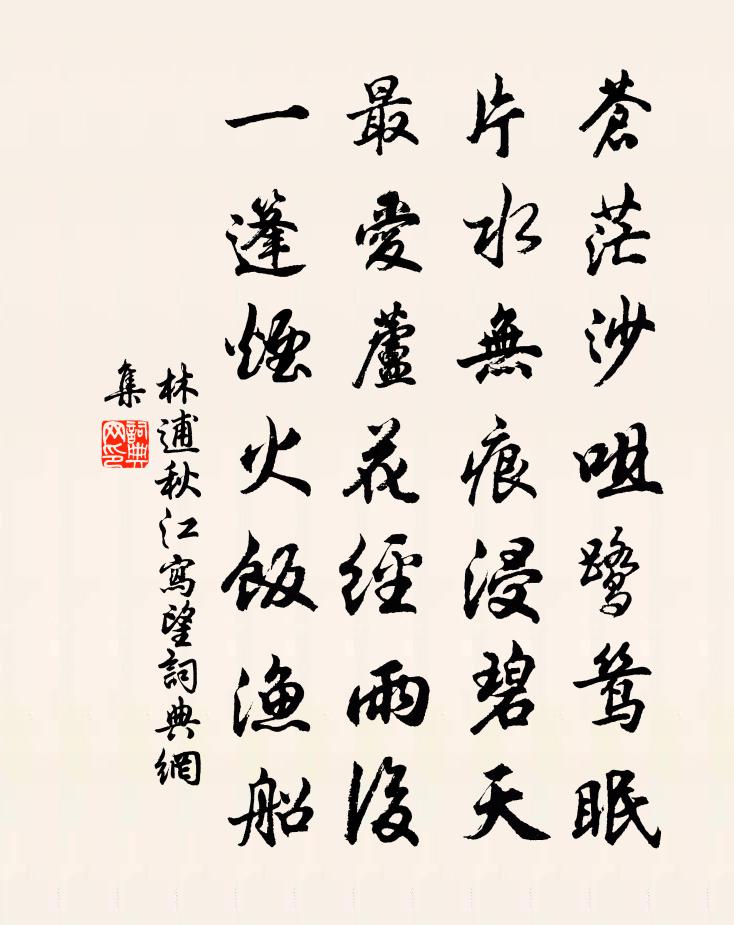 蒼茫沙咀鷺鴛眠
片水無痕浸碧天
最愛蘆花經雨後
一蓬煙火飯漁船
林逋秋江寫望詞典網
集
詞典
网印